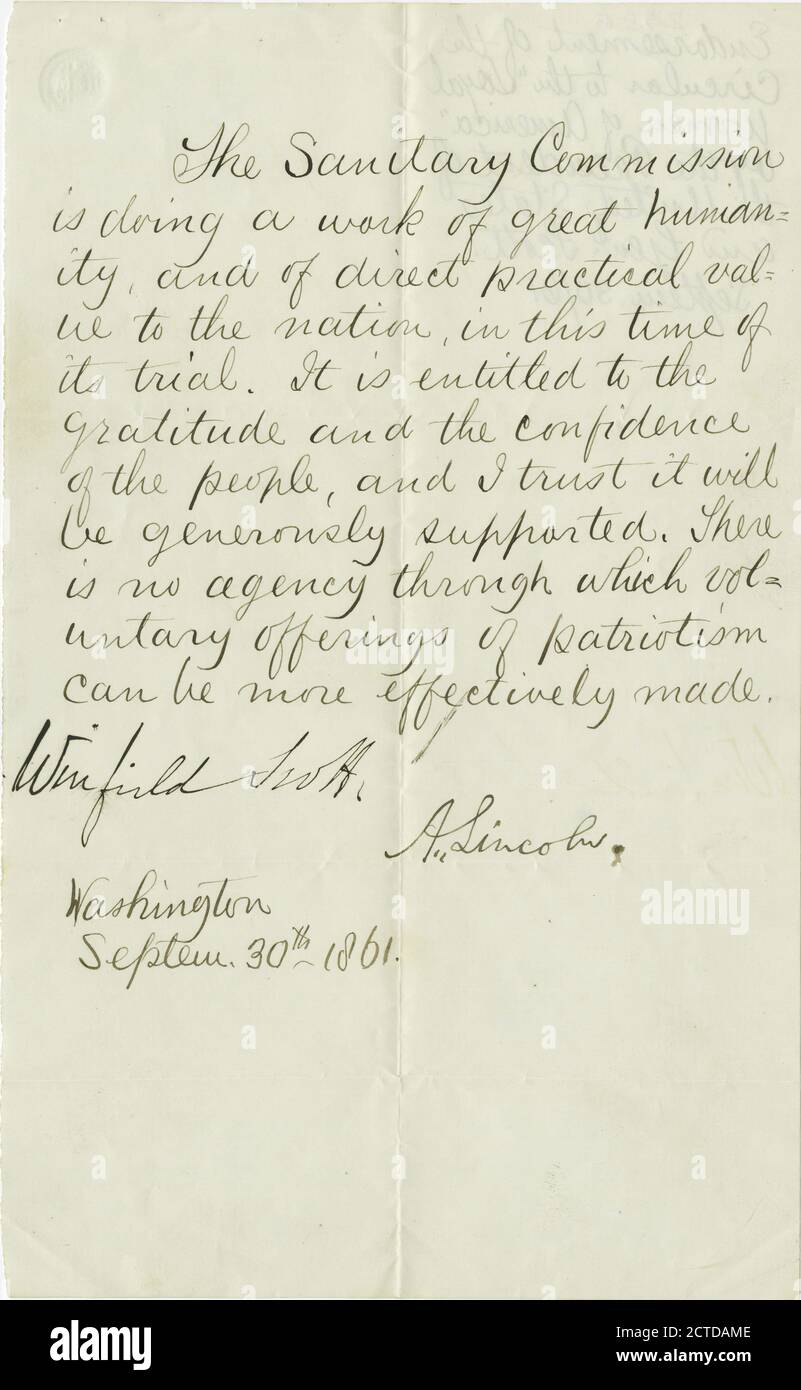 The Sanitary Commission
is doing a work of great human=
ity, and of direct practical val=
ue to the nation, in this time of
its trial. It is entitled to the
gratitude and the confidence
of the people, and I trust it will
be generously supported. There
is no agency through which vol=
untary offerings of patriotism
can be more effectively made.
Winfield Scott.
A. Lincoln.
Washington
Septem. 30th 1861.
Endorsement of the
Circular to the "Loyal
Women of America"
alamy
Image ID: 2CTDAME
www.alamy.com